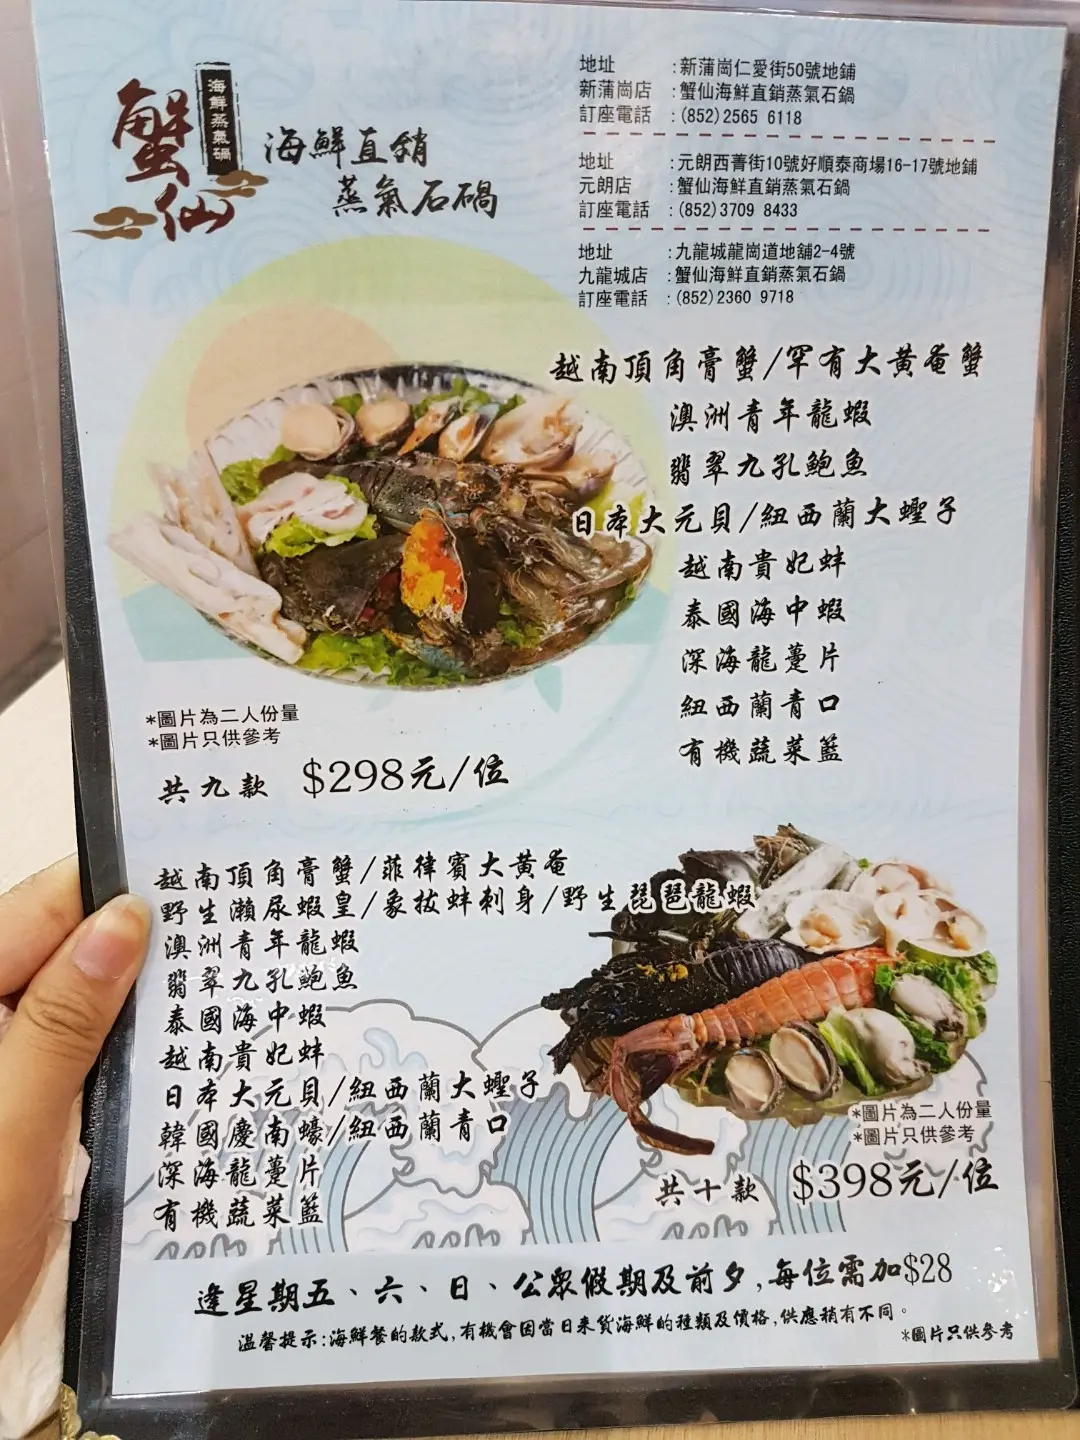 蟹仙
海鮮蒸氣鍋
海鮮直銷
蒸氣石鍋
地址 :新蒲崗仁愛街50號地鋪
新蒲崗店 :蟹仙海鮮直銷蒸氣石鍋
訂座電話 :(852)2565 6118
地址 :元朗西菁街10號好順泰商場16-17號地鋪
元朗店 :蟹仙海鮮直銷蒸氣石鍋
訂座電話 :(852)3709 8433
地址 :九龍城龍崗道地舖2-4號
九龍城店 :蟹仙海鮮直銷蒸氣石鍋
訂座電話 :(852)2360 9718
越南頂角膏蟹/罕有大黃奄蟹
澳洲青年龍蝦
翡翠九孔鮑魚
日本大元貝/紐西蘭大蟶子
越南貴妃蚌
泰國海中蝦
深海龍躉片
紐西蘭青口
有機蔬菜籃
*圖片為二人份量
*圖片只供參考
共九款 $298元/位
越南頂角膏蟹/菲律賓大黃奄
野生瀨尿蝦皇/象拔蚌刺身/野生琵琶龍蝦
澳洲青年龍蝦
翡翠九孔鮑魚
泰國海中蝦
越南貴妃蚌
日本大元貝/紐西蘭大蟶子
韓國慶南蠔/紐西蘭青口
深海龍躉片
有機蔬菜籃
*圖片為二人份量
*圖片只供參考
共十款 $398元/位
逢星期五、六、日、公眾假期及前夕,每位需加$28
溫馨提示:海鮮餐的款式,有機會因當日來貨海鮮的種類及價格,供應稍有不同。
*圖片只供參考